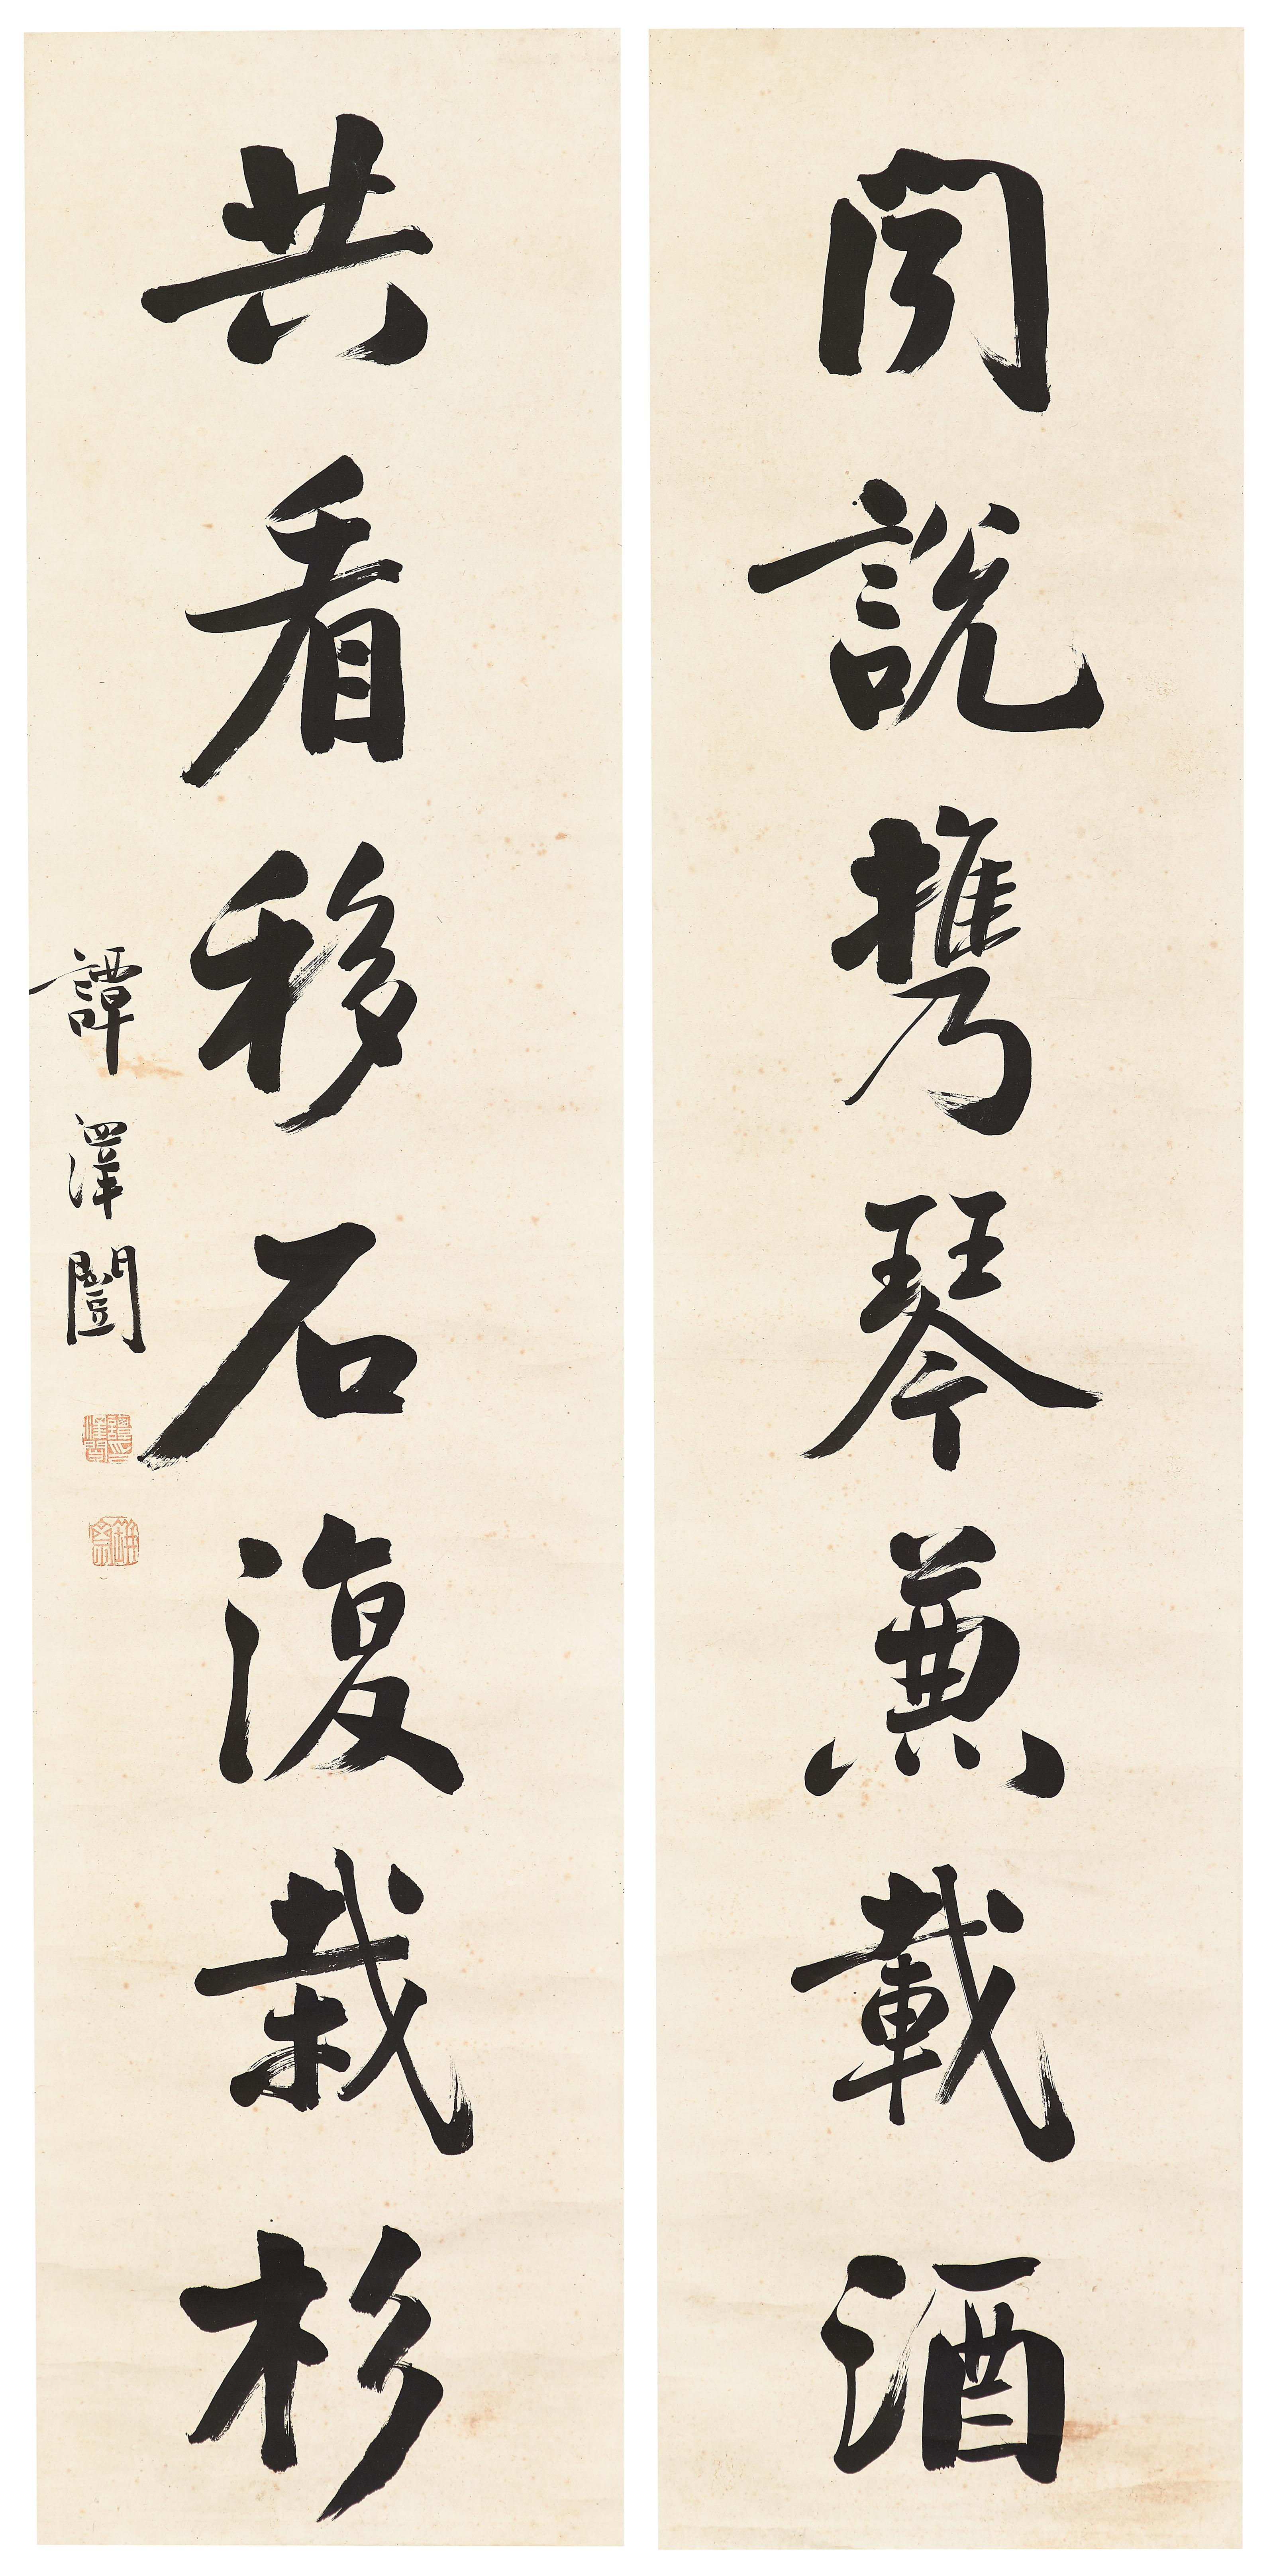 閒說攜琴兼載酒
共看移石復栽杉
譚澤闓